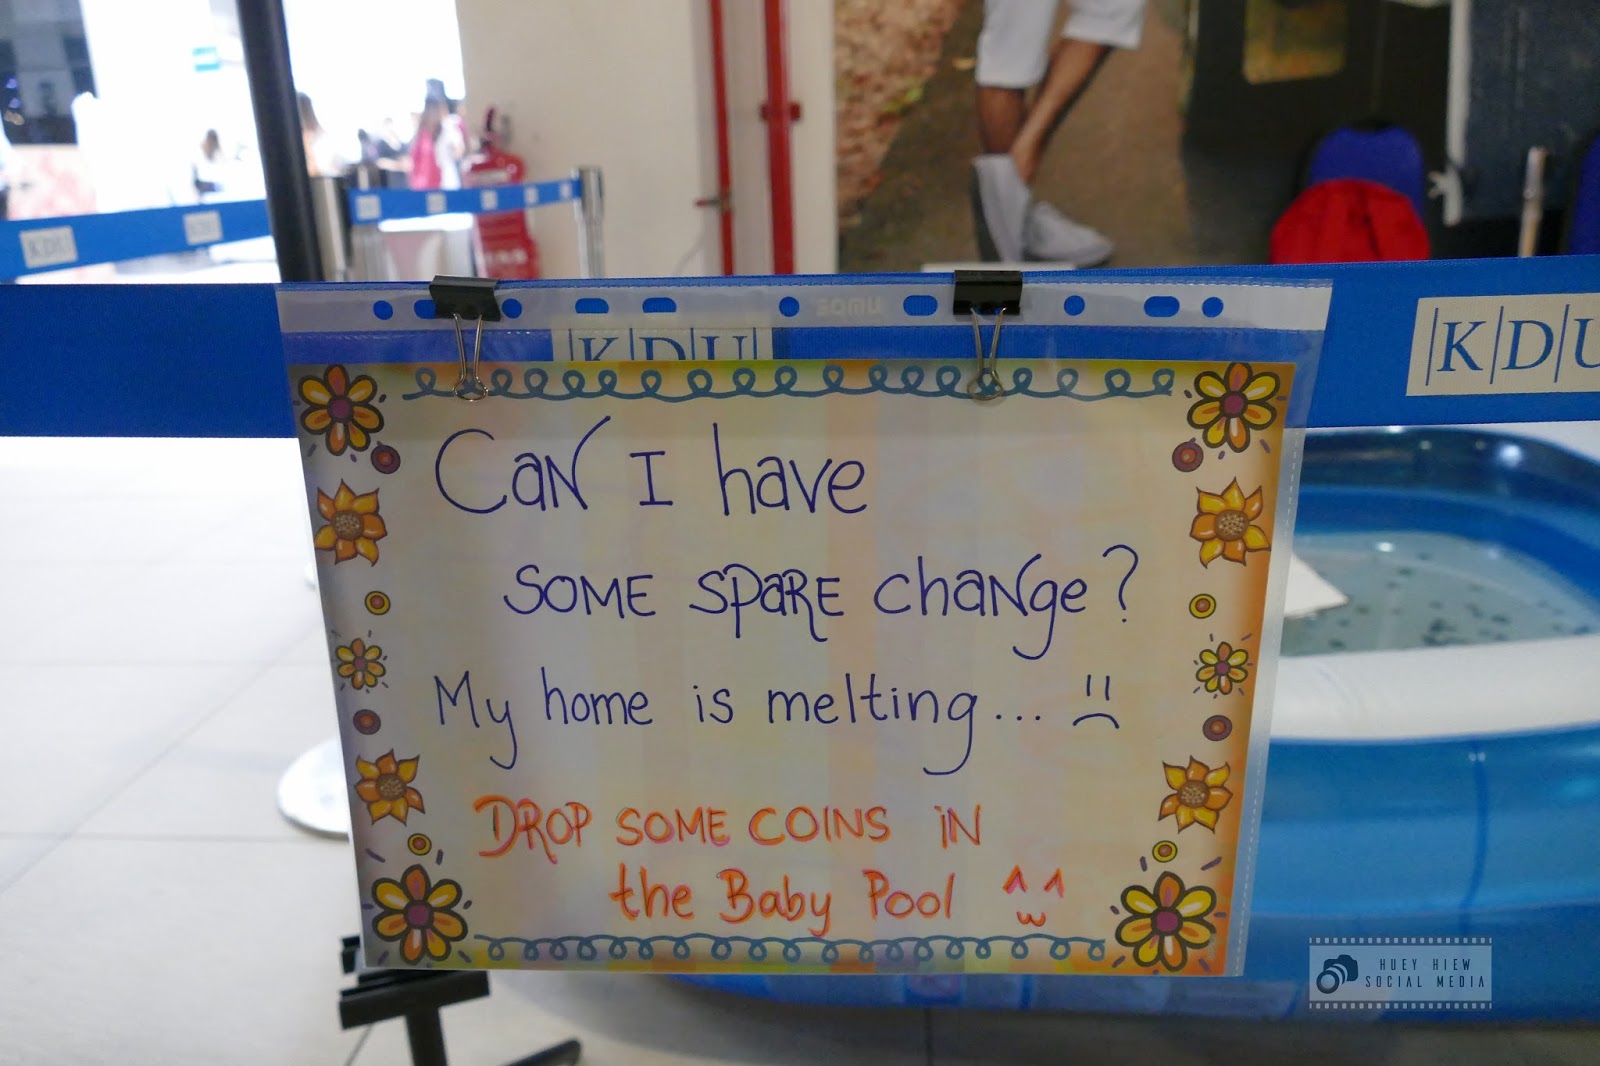 KDU
KDU
KDU
KDU
Can I have
some spare change?
My home is melting...
Drop some coins in
the Baby Pool ^w^
HUEY HIEW
SOCIAL MEDIA